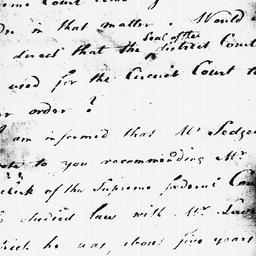 Court
in that matter. Would
direct that the Seal of the district Court
used for the Circuit Court t
or order?
am informed that Mr Sedgw
to you recommending Mr.
clerk of the Supreme federal Cou
studied law with Mr.
which he was, about five years